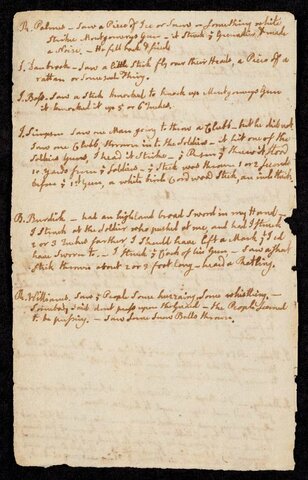 R. Palmes — Saw a Piece of Ice or Snow — Something white
Strike Montgomerys Gun — it Struck yᵉ Grenadier & made
a Noise. — He fell back & fired
J. Danbrook — Saw a little Stick fly over their Heads, a Piece of a
rattan or some such Thing.
J. Bass. Saw a Stick knocked to knock up Montgomerys Gun
it knocked it up 5 or 6 Inches.
J. Simpson Saw one Man going to throw a Clubb. but he did not.
Saw one Clubb thrown into the Soldiers — it hit one of the
Soldiers Guns, I heard it Strike — yᵉ Person yᵉ threw it Stood
10 Yards from yᵉ Soldiers — yᵉ Stick was thrown 1 or 2 Seconds
before yᵉ 1st Gun, a white birch Cord wood Stick, an inch thick
B. Burdick — had an highland broad Sword in my Hand
I Struck at the Soldier who pushed at me, and had I Struck
2 or 3 Inches farther I should have left a Mark yᵗ I cd.
have Sworn to. — I Struck yᵉ Lock of his Gun — Saw a Short
Stick thrown about 2 or 3 foot long — heard a Rattling.
R. Williams. Saw yᵉ People Some huzzaing, Some whistling —
Somebody said dont press upon the Guard — the People seemed
to be pressing — Saw Some Snow Balls thrown.